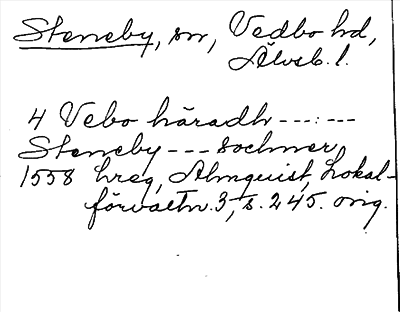 Steneby, sn, Vedbo hd,
Älvsb. l.
4 Vebo häradh ---:---
Steneby --- sochner
1558 hreg, Almquist, Lokal-
förvaltn. 3, s. 245. orig.